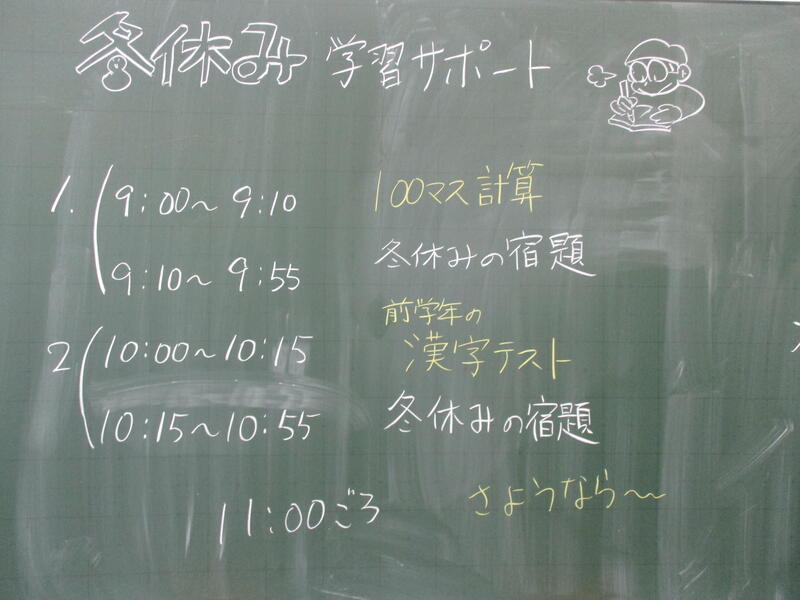 冬休み 学習サポート
1. 9:00〜9:10 100マス計算
9:10〜9:55 冬休みの宿題
前学年の
2 10:00〜10:15 漢字テスト
10:15〜10:55 冬休みの宿題
11:00ごろ さようなら〜